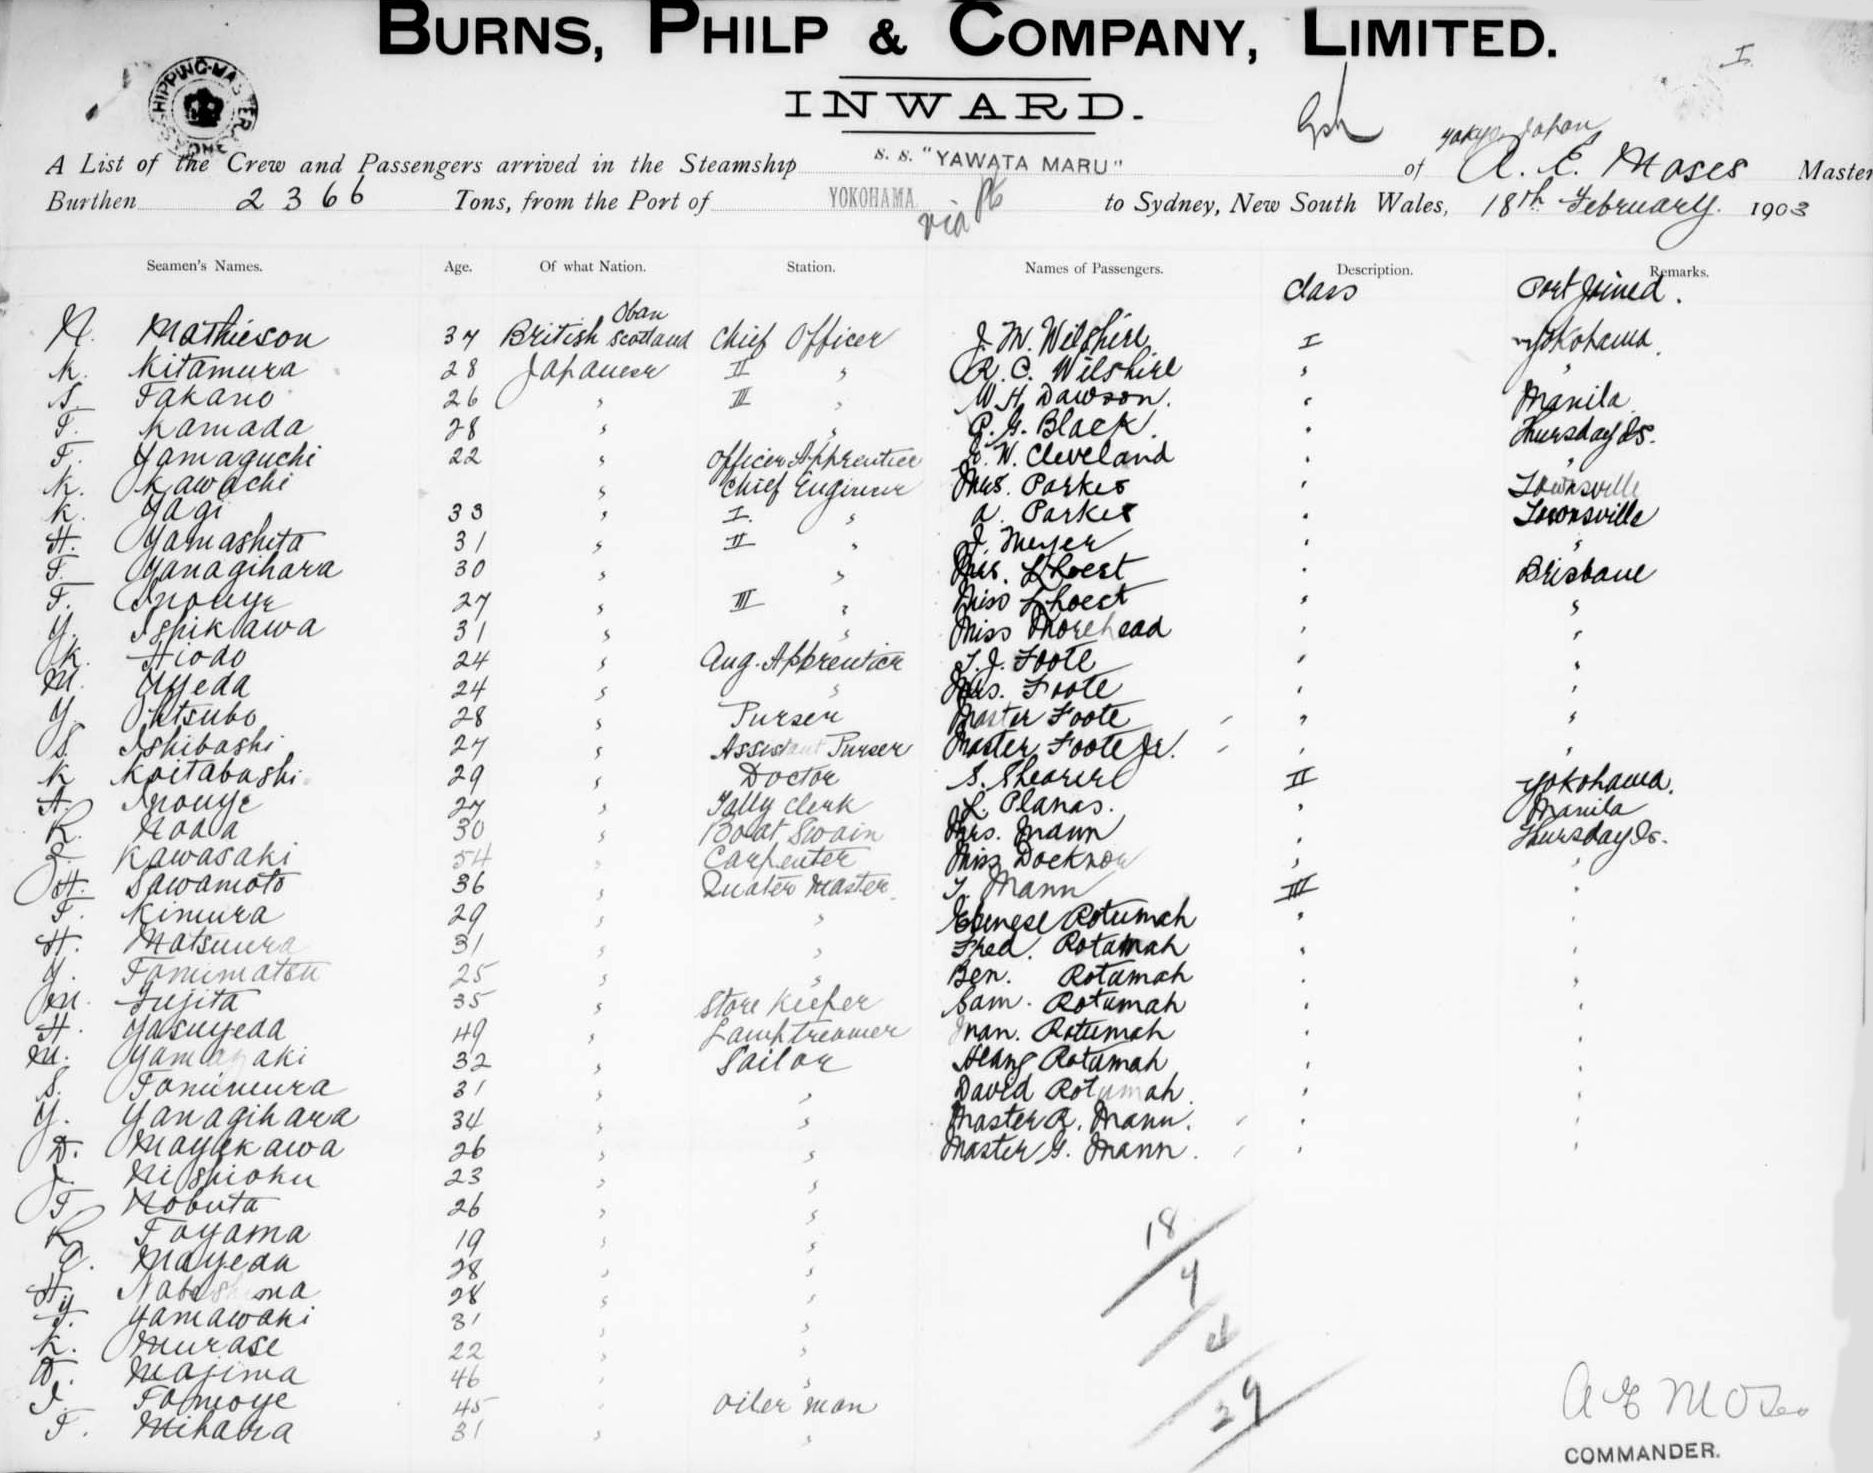 BURNS, PHILP & COMPANY, LIMITED.
I
INWARD.
SHIPPING MASTER
A List of the Crew and Passengers arrived in the Steamship S. S. "YAWATA MARU" of A. E. Moses Master
Burthen 2366 Tons, from the Port of YOKOHAMA via Pts to Sydney, New South Wales, 18th February 1903
Seamen's Names. Age. Of what Nation. Station. Names of Passengers. Description. Remarks.
Class Port Joined.
Oban
N. Mathieson 37 British Scotland Chief Officer J. M. Wilshire I Yokohama
K. Kitamura 28 Japanese II " R. C. Wilshire " "
S. Takano 26 " III " W. H. Dawson. " Manila
T. Kamada 28 " " G. Black. " Thursday Is.
T. Yamaguchi 22 " Officer Apprentice W. Cleveland " "
K. Kawachi " Chief Engineer Mrs. Parker " Townsville
K. Yagi 33 " I. " A. Parker " Townsville
H. Yamashita 31 " II " J. Meyer " "
T. Yanagihara 30 " " Mrs. Lhoest " Brisbane
T. Inouye 27 " III " Miss Lhoest " "
Y. Ishikawa 31 " " Miss Morehead " "
K. Hiodo 24 " Aug. Apprentice T. J. Foote " "
M. Uyeda 24 " " Mrs. Foote " "
Y. Ohtsubo 28 " Purser Master Foote " "
S. Ishibashi 27 " Assistant Purser Master Foote Jr. " "
K Koitabashi 29 " Doctor S. Shearer II Yokohama.
A. Inouye 27 " Tally Clerk L. Planas. " Manila
R. Noda 30 " Boat Swain Mrs. Mann " Thursday Is.
Kawasaki 54 " Carpenter Miss " "
H. Sawamoto 36 Quater Master T. Mann III "
T. Kimura 29 " " Rotumah " "
H. Matsuura 31 " " Fred. Rotumah " "
Y. Tomimatsu 25 " " Ben. Rotumah " "
M. Fujita 35 " Store Keeper Sam. Rotumah " "
H. Yasuyeda 49 " Lamptreamer Rotumah " "
M. Yamazaki 32 " Sailor Rotumah " "
S. Tomimura 31 " " David Rotumah " "
Y. Yanagihara 34 " " Master R. Mann. " "
D. Mayekawa 26 " " Master G. Mann. " "
J. Nishioku 23 " "
T. Nobuta 26 " "
R Toyama 19 " "
G. Mayeda 28 " "
H. Nabeshima 28 " "
Y. Yamawaki 31 " "
K. Murase 22 " "
D. Majima 46 " "
I. Tomoye 45 " Oiler man
T. Mihara 31 " "
18
4
29
A E Moses
COMMANDER.